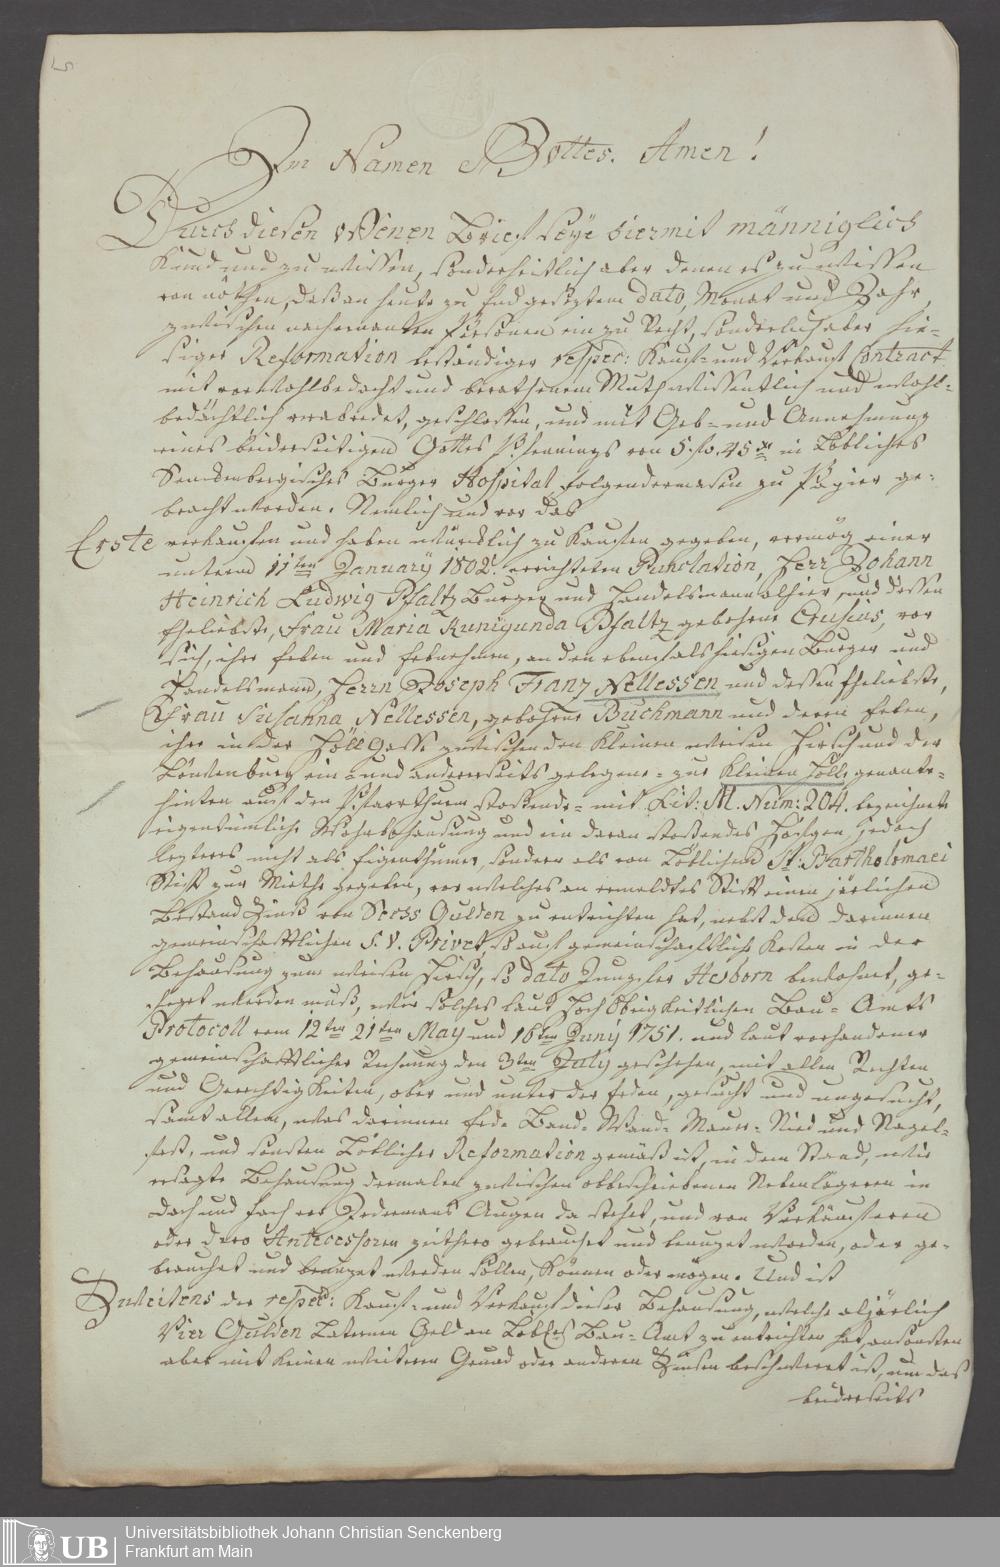 Im Namen Gottes. Amen!
Durch diesen offenen Brief seye hiermit männiglich
Kund und zu wissen, sonderheitlich aber denen es zu wissen
von nöthen, daß an heute zu End geseztem Dato, Monat und Jahr,
zwischen nachernanten Persones ein zu Recht, sonderlich aber hie-
siger Reformation beständiger respec: Kauf- und Verkauf Contract
mit vorwohlbedacht und berathenem Muth wissentlich und wohl-
bedächtlich verabredet, geschlossen, und mit Geb- und Annehmung
eines beiderseitigen Gottes Pfennings von 5. fl. 45 xr in Löbliches
Senckenbergisches Burger Hospital folgendermasen zu Papier ge-
bracht worden. Nemlich und vor das
Erste verkaufen und haben würcklich zu Kaufen gegeben, vermög einer
unterm 11ten January 1802. errichteten Punctation, Herr Johann
Heinrich Ludwig Pfaltz Burger und Handelsmann alhier, und dessen
Eheliebste, Frau Maria Kunigunda Pfaltz gebohrne Crusius, vor
sich, ihre Erben und Erbnehmen, an den ebenfals hiesigen Burger und
Handelsmann, Herrn Joseph Franz Nellessen und dessen Eheliebste,
Frau Susanna Nellessen, gebohrne Buchmann und deren Erben,
ihre in der Höll Gass zwischen dem Kleinen weisen Hirsch und der
Löwenburg ein- und andererseits gelegene- zur Kleinen Höll genante-
hinten auf den Pfarrthurn stosende- mit Lit: M. Num: 204. bezeichnete
eigentümliche Wohnbehausung und ein daran stosendes Höfgen, jedoch
lezteres nicht als Eigenthumer, sondern als von Löblichem St: Bartholomaei
Stift zur Miethe gegeben, vor welches an ermeldtes Stift einen järlichen
Bestand Zinß von Sechs Gulden zu entrichten hat, nebst dem darinnen
gemeinschafftlichen S. V. Privet, so auf gemeinschaftliche Kosten in der
Behausung zum weisen Hirsch, so dato Jungfer Hesborn bewohnet, ge-
feget werden muß, wie solches laut Hoch Obrigkeitlichen Bau- Amts
Protocoll vom 12ten 21ten May und 16ten Juny 1751. und laut vorhandener
gemeinschaftlicher Rechnung den 3ten July geschehen, mit allen Rechten
und Gerechtigkeiten, ober und unter der Erden, gesucht und ungesucht,
samt allem, was darinnen Erd- Band- Wand- Mauer- Nied und Nagel-
fest, und sonsten Löblicher Reformation gemäß ist, in dem Stand, wie
ersagte Behausung dermalen zwischen obbeschriebenen Nebenlägeren in
Dach und Fach vor Jedermans Augen da stehet, und von Verkäufferen
oder dero Antecessoren zeithero gebrauchet und benuzet worden, oder ge-
brauchet und benuzet werden sollen, können oder mögen. Und ist
Zweitens der respec: Kauf- und Verkauf dieser Behausung, welche alljärlich
Vier Gulden Laternen Geld an Löbles Bau- Amt zu entrichten hat, ansonsten
aber mit keinen weiteren Grund oder anderen Zinsen beschweret ist, um das
beiderseits
Universitätsbibliothek Johann Christian Senckenberg
Frankfurt am Main
UB